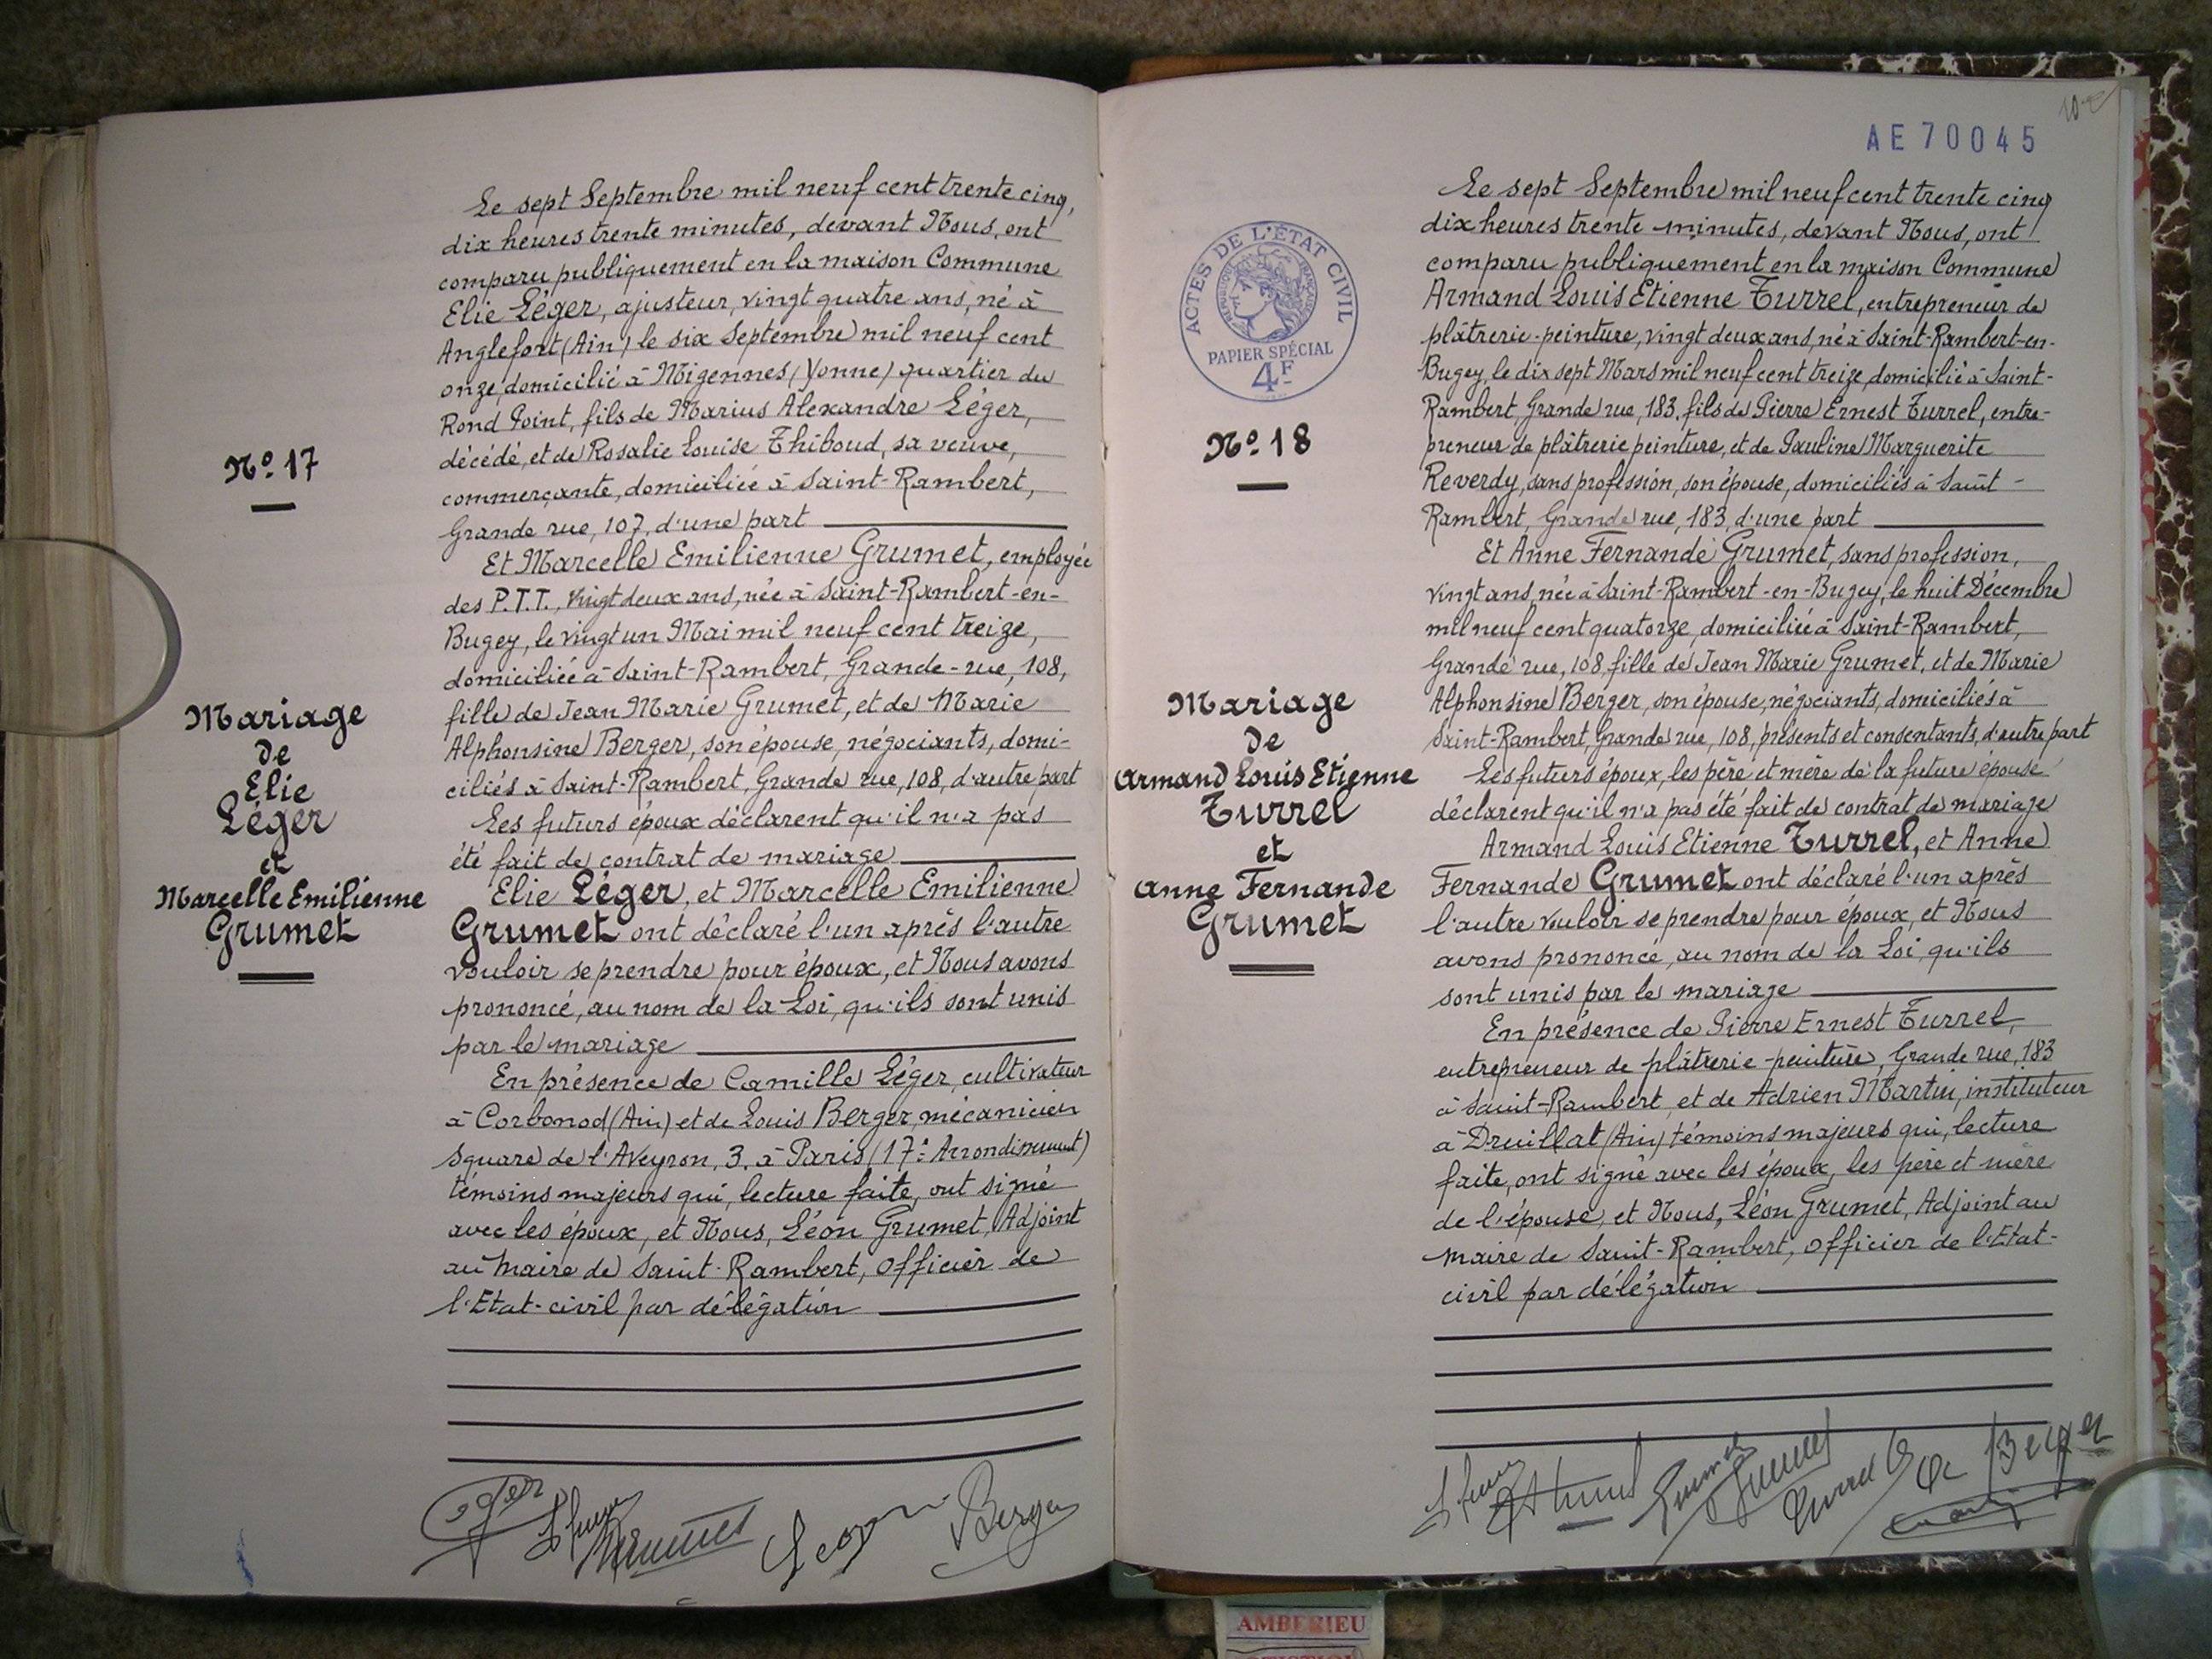 Le sept Septembre mil neuf cent trente cinq,
dix heures trente minutes, devant Nous, ont
comparu publiquement en la maison Commune
Elie Léger, ajusteur, vingt quatre ans, né à
Anglefort (Ain) le six Septembre mil neuf cent
onze, domicilié à Migennes (Yonne) quartier du
Rond Point, fils de Marius Alexandre Léger,
décédé, et de Rosalie Louise Thiboud, sa veuve,
commerçante, domiciliée à Saint-Rambert,
Grande rue, 107, d'une part
Et Marcelle Emilienne Grumet, employée
des P.T.T., vingt deux ans, née à Saint-Rambert-en-
Bugey, le vingt un Mai mil neuf cent treize,
domiciliée à Saint-Rambert, Grande-rue, 108,
fille de Jean Marie Grumet, et de Marie
Alphonsine Berger, son épouse, négociants, domi-
ciliés à Saint-Rambert, Grande rue, 108, d'autre part
Les futurs époux déclarent qu'il n'a pas
été fait de contrat de mariage
Elie Léger, et Marcelle Emilienne
Grumet ont déclaré l'un après l'autre
vouloir se prendre pour époux, et Nous avons
prononcé, au nom de la Loi, qu'ils sont unis
par le mariage
En présence de Camille Léger, cultivateur
à Corbonod (Ain) et de Louis Berger, mécanicien
Square de l'Aveyron, 3, à Paris (17e Arrondissement)
témoins majeurs qui, lecture faite, ont signé
avec les époux, et Nous, Léon Grumet, Adjoint
au Maire de Saint-Rambert, Officier de
l'Etat-civil par délégation
N° 17
Mariage
de
Elie
Léger
et
Marcelle Emilienne
Grumet
Berger
AE 70045
ACTES DE L'ÉTAT CIVIL
RÉPUBLIQUE FRANÇAISE
PAPIER SPÉCIAL
4F
N° 18
Mariage
de
Armand Louis Etienne
Turrel
et
Anne Fernande
Grumet
Le sept Septembre mil neuf cent trente cinq
dix heures trente minutes, devant Nous, ont
comparu publiquement en la maison Commune
Armand Louis Etienne Turrel, entrepreneur de
plâtrerie-peinture, vingt deux ans, né à Saint-Rambert-en-
Bugey, le dix sept Mars mil neuf cent treize, domicilié à Saint-
Rambert, Grande rue, 183, fils de Pierre Ernest Turrel, entre-
preneur de plâtrerie peinture, et de Pauline Marguerite
Reverdy, sans profession, son épouse, domiciliés à Saint-
Rambert, Grande rue, 183, d'une part
Et Anne Fernande Grumet, sans profession,
vingt ans, née à Saint-Rambert-en-Bugey, le huit Décembre
mil neuf cent quatorze, domiciliée à Saint-Rambert,
Grande rue, 108, fille de Jean Marie Grumet, et de Marie
Alphonsine Berger, son épouse, négociants, domiciliés à
Saint-Rambert, Grande rue, 108, présents et consentants, d'autre part
Les futurs époux, les père et mère de la future épouse
déclarent qu'il n'a pas été fait de contrat de mariage
Armand Louis Etienne Turrel, et Anne
Fernande Grumet ont déclaré l'un après
l'autre vouloir se prendre pour époux, et Nous
avons prononcé, au nom de la Loi, qu'ils
sont unis par le mariage
En présence de Pierre Ernest Turrel,
entrepreneur de plâtrerie-peinture, Grande rue, 183
à Saint-Rambert, et de Adrien Martin, instituteur
à Druillat (Ain) témoins majeurs qui, lecture
faite, ont signé avec les époux, les père et mère
de l'épouse, et Nous, Léon Grumet, Adjoint au
Maire de Saint-Rambert, Officier de l'Etat-
civil par délégation
Berger
AMBERIEU